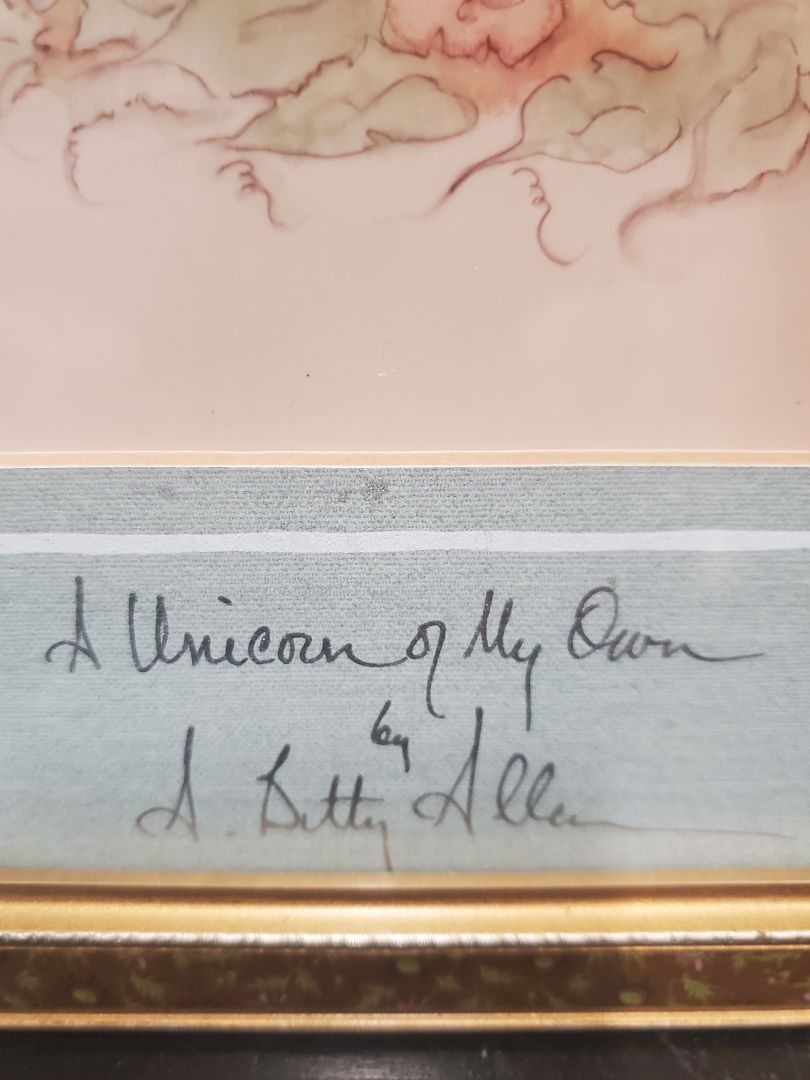 A Unicorn of My Own
by
A. Betty Allen